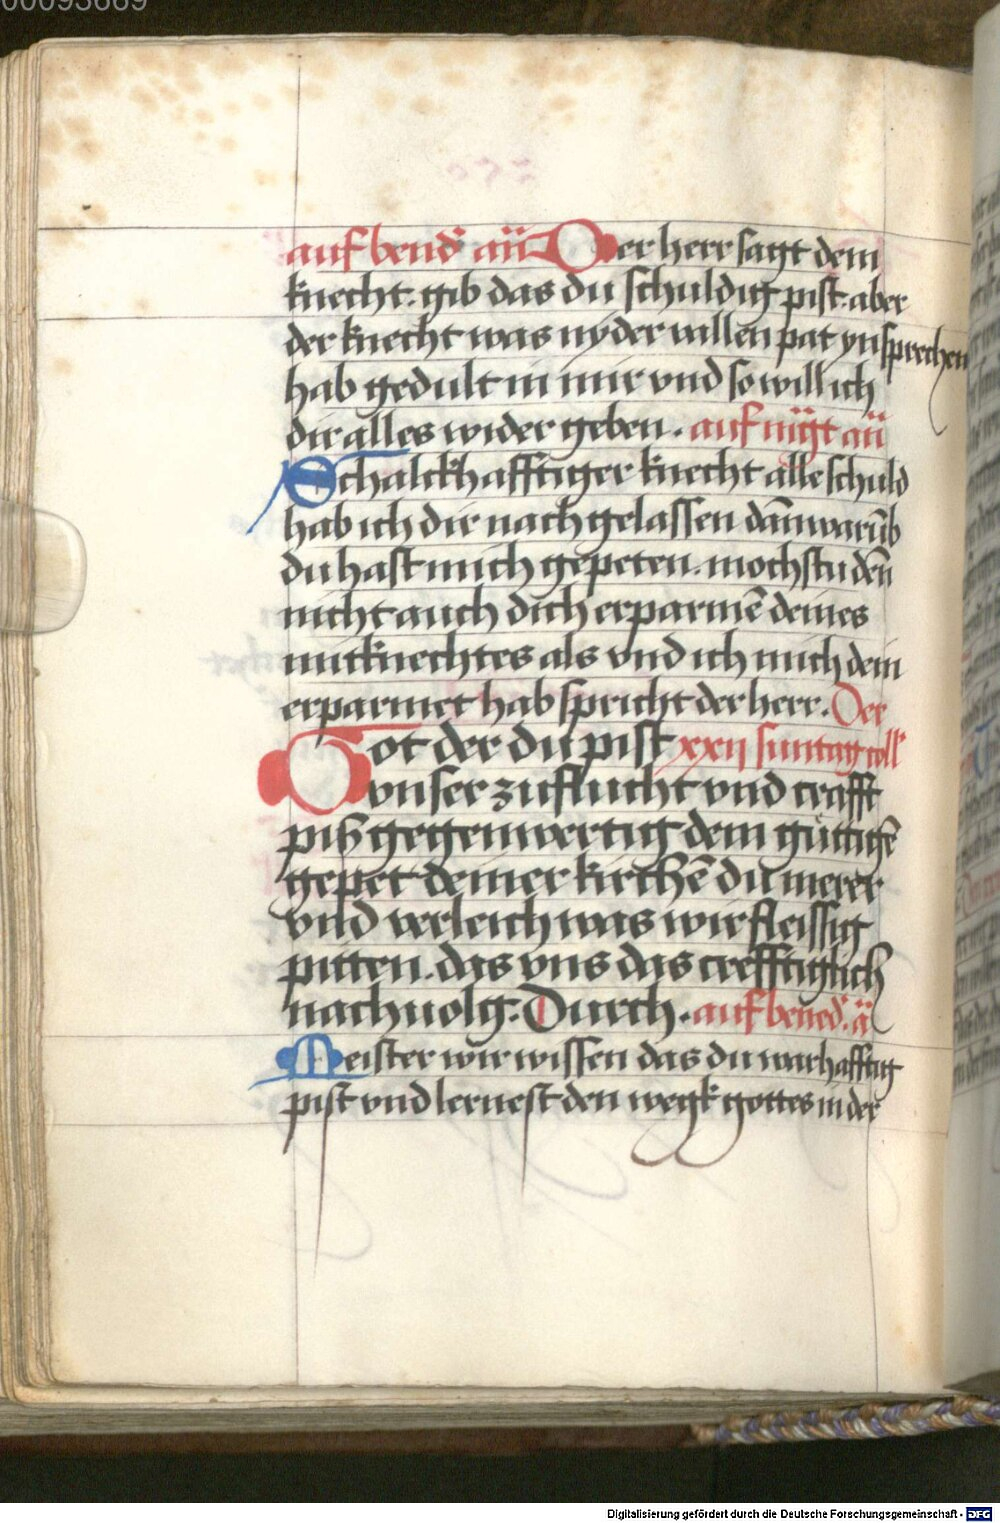 00093669
auf bend̄ añ Der herr sagt dem
knecht. gib das du schuldig pist. aber
der knecht was nyder vallen pat yn sprechen
hab gedult in mir vnd so will ich
dir alles wider geben. auf mgt añ
Schalckhafftiger knecht alle schuld
hab ich dir nach gelassen dann̄ warūb
du hast mich gepeten. mochstu deñ
nicht auch dich erparmē deines
mitknechtes als vnd ich mich dein
erparmet hab spricht der herr. Der
Got der du pist xxii suntag coll̕
vnser zuflucht vnd crafft
piß gegenwertig dem gutigē
gepet deiner kirchē du merer
vnd verleich was wir fleissig
pitten. das vns das crefftiglich
nachuolg. Durch. auf bened̄. ā
Meister wir wissen das du warhafftig
pist vnd lernest den wegk gottes in der
Digitalisierung gefördert durch die Deutsche Forschungsgemeinschaft - DFG